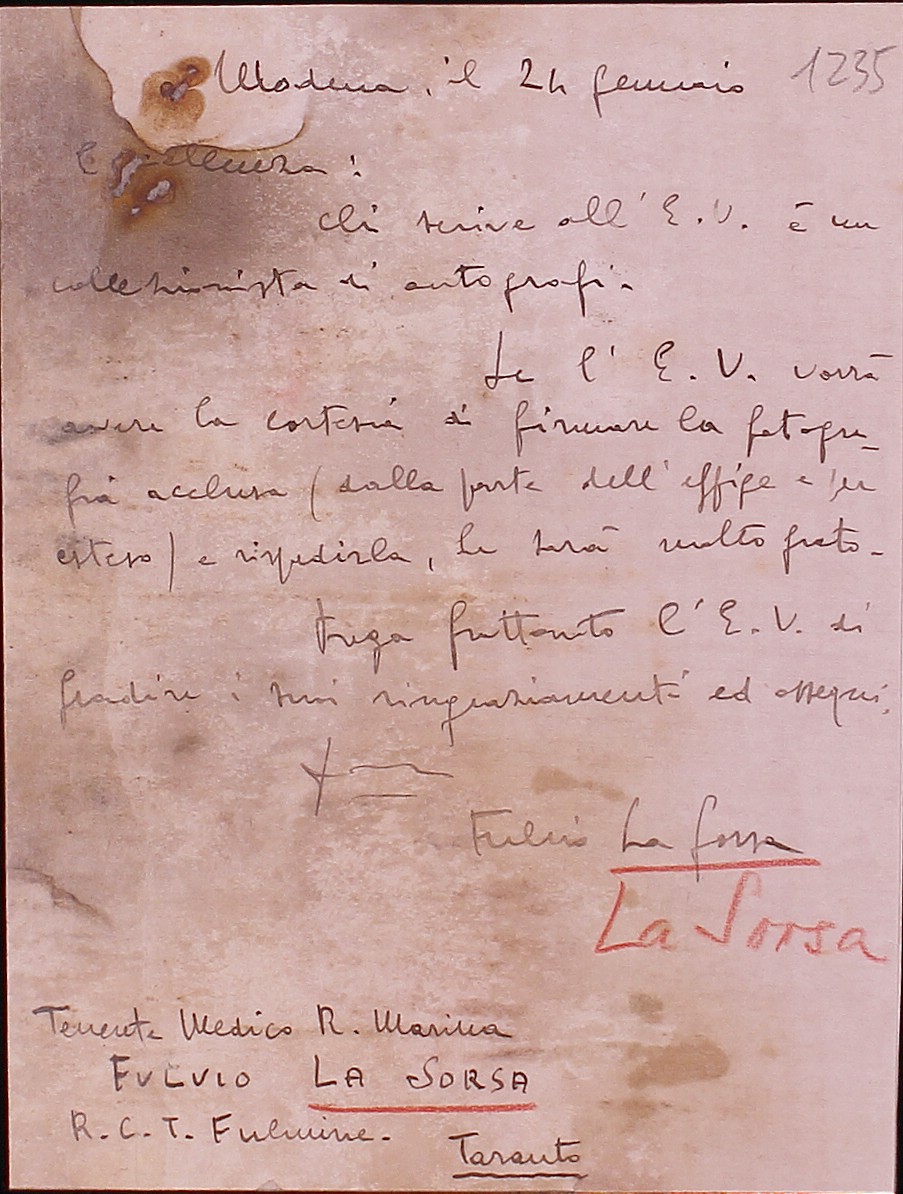 Modena, il 24 gennaio 1235
Eccellenza:
chi scrive all'E.V. è un
collezionista di autografi.
Se l'E.V. vorrà
avere la cortesia di firmare la fotogra-
fia acclusa (dalla parte dell'effige e per
esteso) e rispedirla, le sarà molto grato.
Prega frattanto l'E.V. di
gradire i suoi ringraziamenti ed ossequi.
Fulvio La Sorsa
La Sorsa
Tenente Medico R. Marina
FULVIO LA SORSA
R.C.T. Fulmine.
Taranto